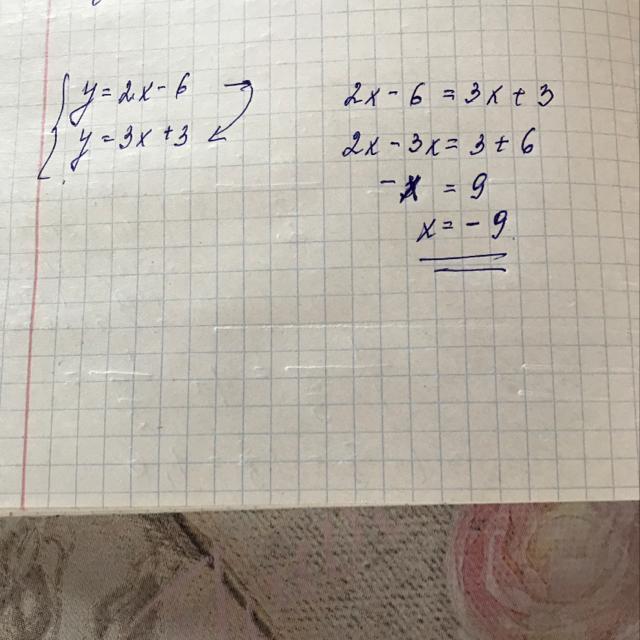 y = 2x - 6
y = 3x + 3
2x - 6 = 3x + 3
2x - 3x = 3 + 6
- x = 9
x = - 9